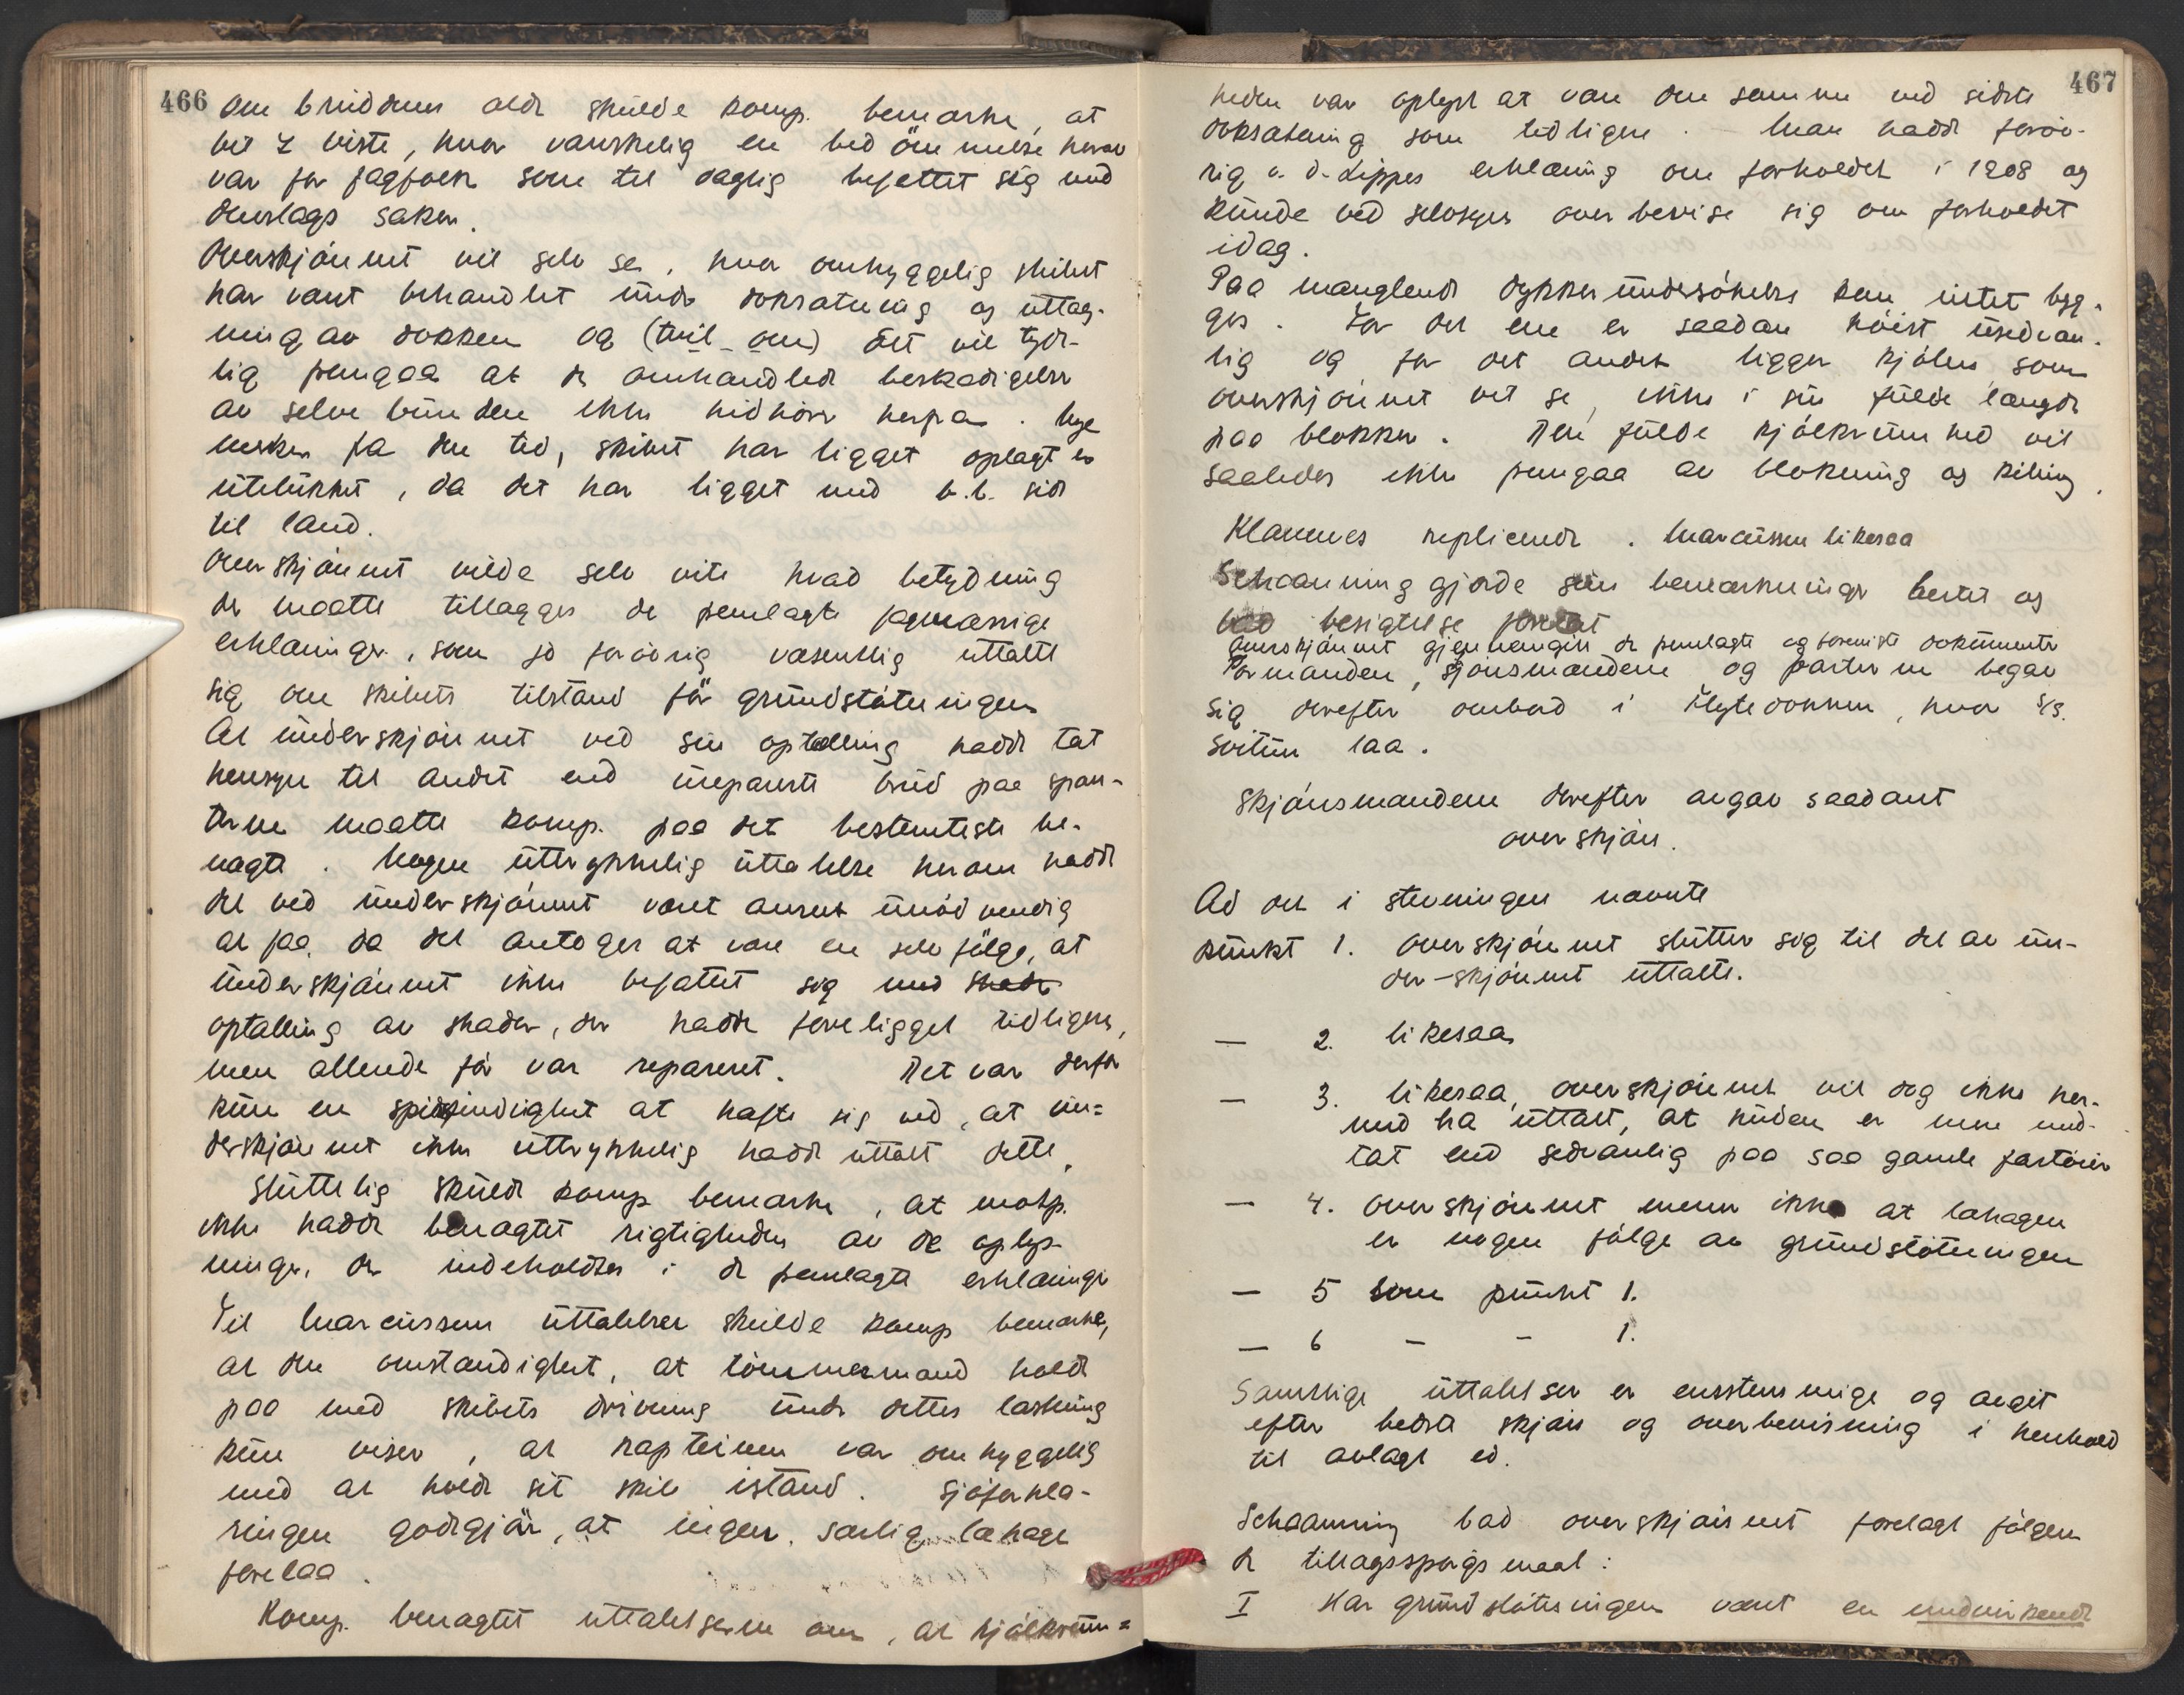 466
Om bruddenes alde skulde komp. bemærke, at
bil 4 viste, hvor vanskelig en bedömmelse herav
var for fagfolk som til daglig befattet sig med
denslags saker.
Overskjönnet vil selv se, hvor omhyggelig skibet
har været behandlet under doksætning og uttag-
ning av dokken og (tvil om) det vil tyde-
lig fremgaa at de omhandlede beskadigelser
av selve bunden ikke hidhörer herfra. Lige
mersker fra den tid, skibet har ligget oplagt er
utelukket, da det har ligget med b.b. side
til land.
Overskjönnet vilde selv vite hvad betydning
der maatte tillægges de fremlagte fagmæssige
erklæringer, som jo forövrig væsentlig uttalte
sig om skibets tilstand för grundstötningen
At underskjönnet ved sin optælling hadde tat
hensyn til andet end ureparerte brud paa span-
terne maatte komp. paa det bestemteste be-
nægte. Nogen uttrykkelig uttalelse herom hadde
det ved underskjönnet været anset unödvendig
at faa, da det antoges at være en selvfölge, at
underskjönnet ikke befattet sig med skade
optælling av skader, der hadde foreligget tidligere,
men allerede för var reparert. Det var derfor
kun en spidsfindighet at hæfte sig ved, at un=
derskjönnet ikke uttrykkelig hadde uttalt dette.
Sluttelig skulde komp bemærke, at motp.
ikke hadde benægtet rigtigheden av de oplys-
ninger, der indeholdtes i de fremlagte erklæringer
Til Marcussens uttalelser skulde komp bemærke,
at den omstændighet, at tömmermand holdt
paa med skibets drivning under dettes lastning
kun viser, at kapteinen var omhyggelig
med at holde sit skib istand. Sjöforkla-
ringen godtgjör, at ingen særlig lækage
forelaa.
Komp. benægtet uttalelserne om, at kjölkrum=
467
heden var oplyst at være den samme ved sidste
doksætning som tidligere. Man hadde forøv-
rig v. d. Lippes erklæring om forholdet i 1908 og
kunde ved selvsyn overbevise sig om forholdet
idag.
Paa manglende dykkerundersökelse kan intet byg-
ges. For det ene er saadan höist usedvan-
lig og for det andet ligger kjölen, som
overskjönnet vil se, ikke i sin fulde længde
paa blokken. Den fulde kjölkrumhed vil
saaledes ikke fremgaa av blokning og kiling.
Klavenes replicerede. Marcussen likesaa
Schaanning gjorde sine bemærkninger hertil og
bad besigtelse foretat
Overskjönnet gjennemgik de fremlagte og foreviste dokumenter
Formanden, skjönsmændene og parterne begav
sig derefter ombord i flytedokken, hvor S/S.
Svitun laa.
Skjönsmændene derefter avgav saadant
overskjön.
Ad det i stevningen nævnte
punkt 1. Overskjönnet slutter sig til det av un-
der-skjönnet uttalte.
— 2. likesaa
— 3. likesaa, overskjönnet vil dog ikke her-
med ha uttalt, at huden er mere med-
tat end sedvanlig paa saa gamle fartöier
— 4. Overskjönnet mener ikke at lækagen
er nogen fölge av grundstötningen
— 5 som punkt 1.
— 6 - - 1.
Samtlige uttalelser er enstemmige og avgit
efter bedste skjön og overbevisning i henhold
til avlagt ed.
Schaanning bad overskjönnet forelagt fölgen
de tillægsspørgsmaal:
I Har grundstötningen været en medvirkende